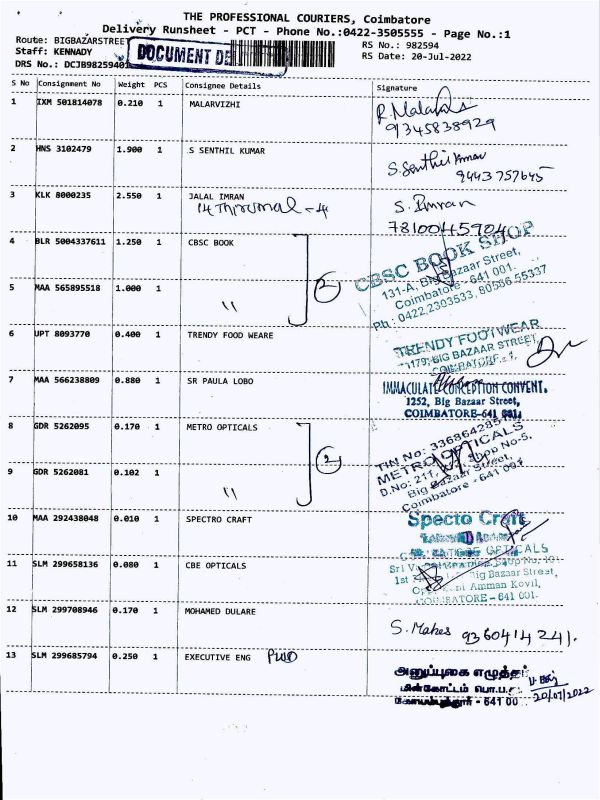 THE PROFESSIONAL COURIERS, Coimbatore
Delivery Runsheet - PCT - Phone No.:0422-3505555 - Page No.:1
Route: BIGBAZARSTREET
RS No.: 982594
Staff: KENNADY
RS Date: 20-Jul-2022
DOCUMENT
DRS No.: DCJB98259401
S No Consignment No Weight PCS Consignee Details Signature
1 IXM 501814078 0.210 1 MALARVIZHI
9345838929
2 HNS 3102479 1.900 1 S SENTHIL KUMAR S.Senthil Kumar
9443757645
3 KLK 8000235 2.550 1 JALAL IMRAN S. Imran
7810045904
4 BLR 5004337611 1.250 1 CBSC BOOK
CBSC BOOK SHOP
131-A, Big Bazaar Street,
Coimbatore - 641 001.
Ph : 0422 2303533, 80586 55337
5 MAA 565895518 1.000 1 "
2
6 UPT 8093770 0.400 1 TRENDY FOOD WEARE
TRENDY FOOTWEAR
1179, BIG BAZAAR STREET,
COIMBATORE - 1.
7 MAA 566238809 0.880 1 SR PAULA LOBO
IMMACULATE CONCEPTION CONVENT.
1252, Big Bazaar Street,
COIMBATORE-641 001.
8 GDR 5262095 0.170 1 METRO OPTICALS
METRO OPTICALS
Shop No-5,
Big Bazaar Street,
Coimbatore - 641 001
9 GDR 5262081 0.102 1 "
2
10 MAA 292438048 0.010 1 SPECTRO CRAFT
Specto Craft
11 SLM 299658136 0.080 1 CBE OPTICALS
OPTICALS
Big Bazaar Street,
Amman Kovil,
COIMBATORE - 641 001.
12 SLM 299708946 0.170 1 MOHAMED DULARE
9360414241.
13 SLM 299685794 0.250 1 EXECUTIVE ENG PWD
அனுப்புகை எழுத்தர்
மின்கோட்டம் பொ.ப.
கோயம்புத்தூர் - 641 00
20/07/2022